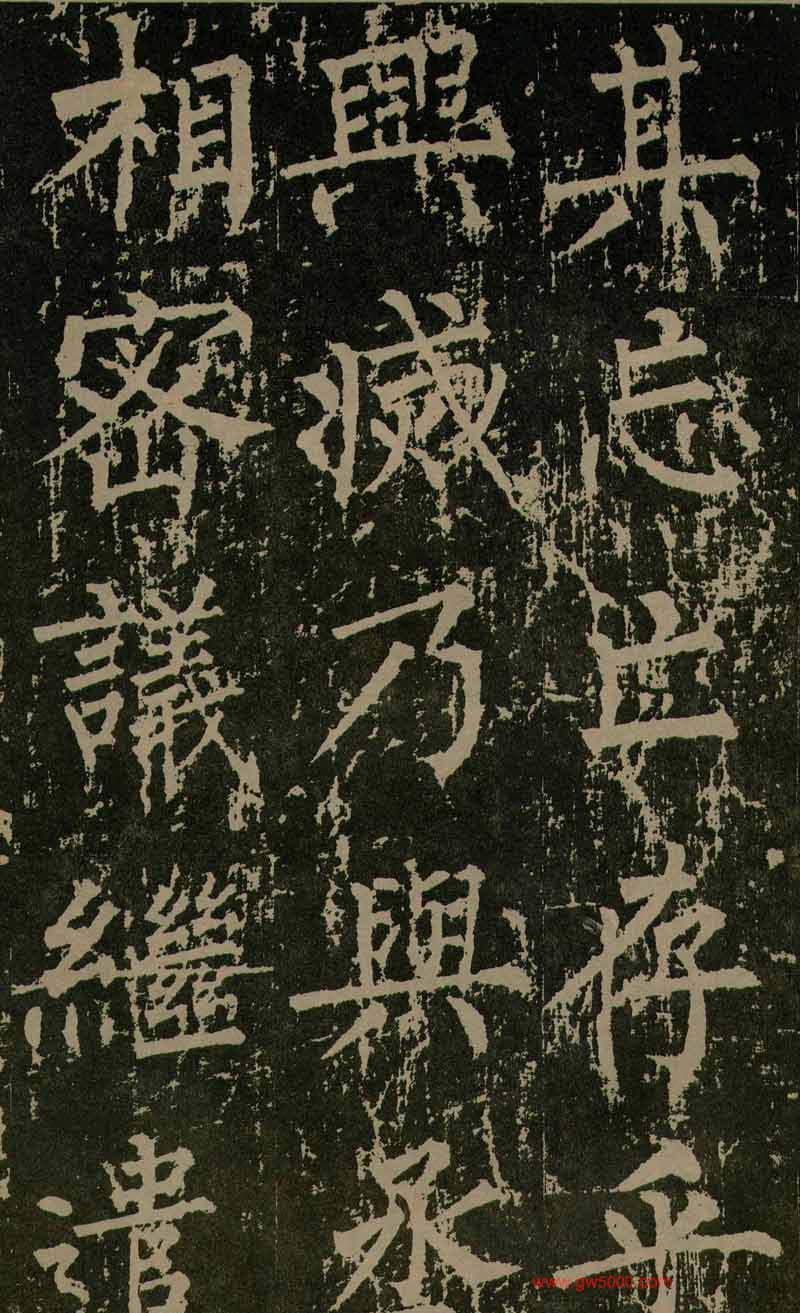 其忘亡存乎
興滅乃與丞
相密議繼遣
www.gw5000.com